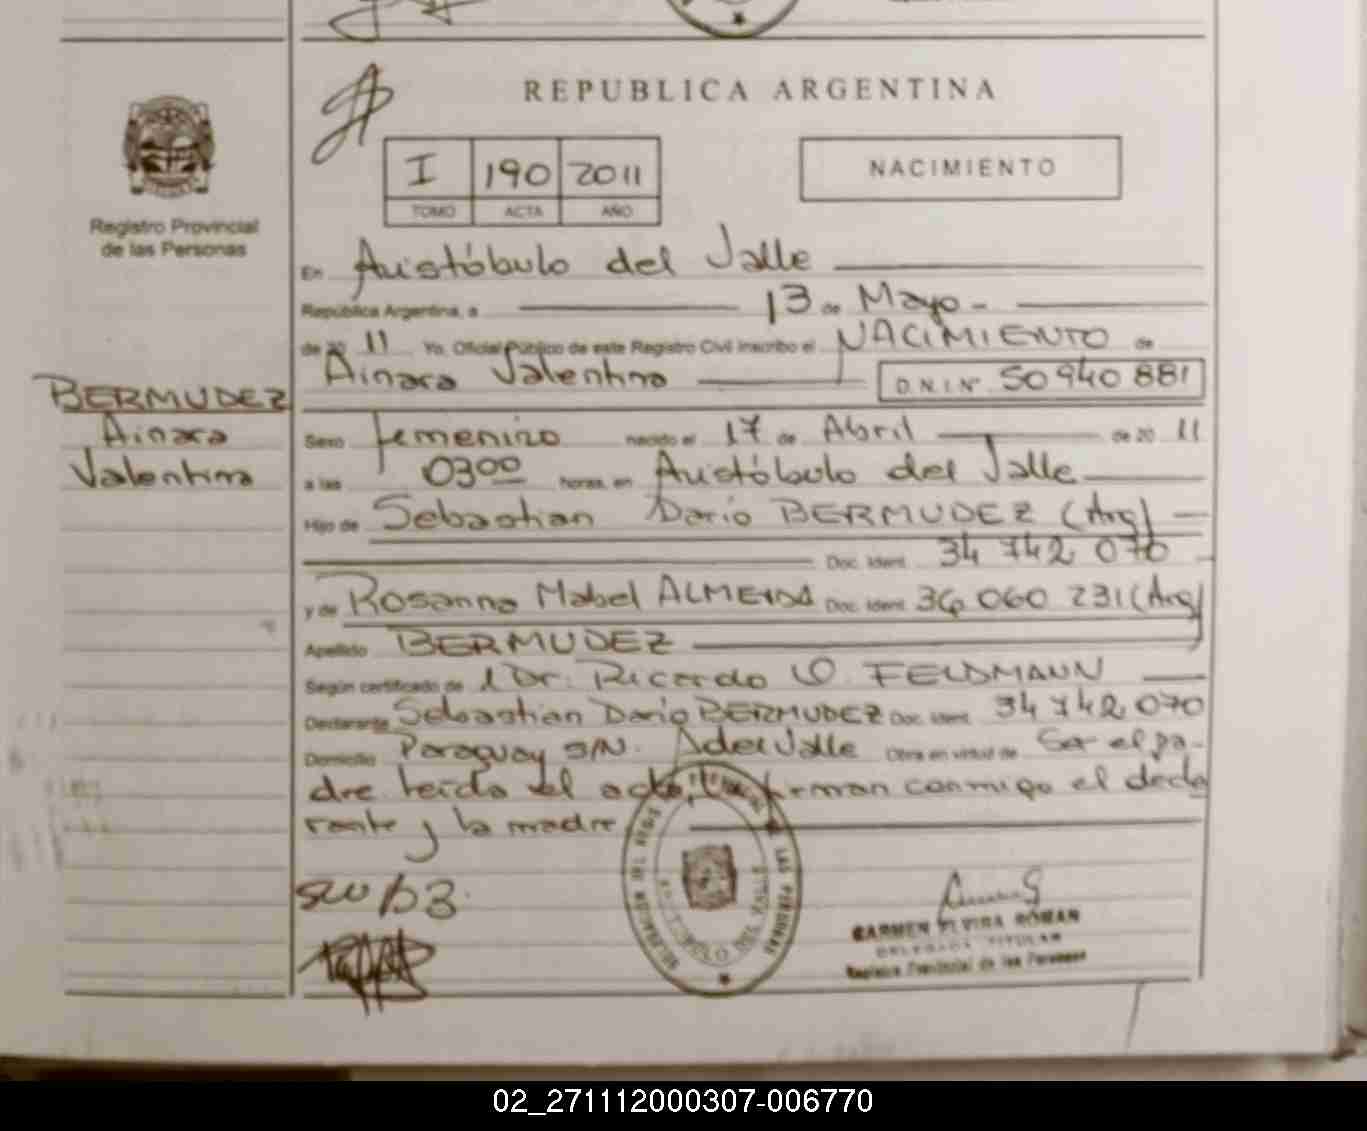 REPUBLICA ARGENTINA
I 190 2011
TOMO ACTA AÑO
NACIMIENTO
Registro Provincial
de las Personas
En Aristóbulo del Valle
República Argentina, a 13 de Mayo -
de 20 11 Yo, Oficial Público de este Registro Civil inscribo el NACIMIENTO de
Ainara Valentina D.N.I. Nº 50 940 881
BERMUDEZ
Ainara
Valentina
Sexo femenino nacido el 17 de Abril de 20 11
a las 0300 horas, en Aristóbulo del Valle
Hijo de Sebastian Dario BERMUDEZ (Arg)
Doc. Ident. 34 742 070
y de Rosanna Mabel ALMEIDA Doc. Ident. 36 060 231 (Arg)
Apellido BERMUDEZ
Según certificado de Dr. Ricardo O. FELDMANN
Declarante Sebastian Dario BERMUDEZ Doc. Ident. 34 742 070
Domicilio Paraguay S/N. A del Valle Obra en virtud de Ser el pa-
dre leída el acta, firman conmigo el decla
rante y la madre
CARMEN ELVIRA ROMAN
DELEGADA TITULAR
Registro Provincial de las Personas
02_271112000307-006770